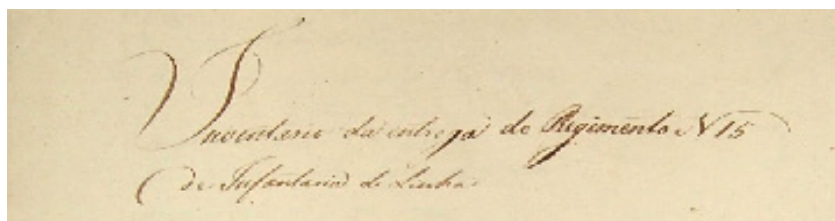 Inventario da entrega do Regimento N 15
de Infantaria de Linha